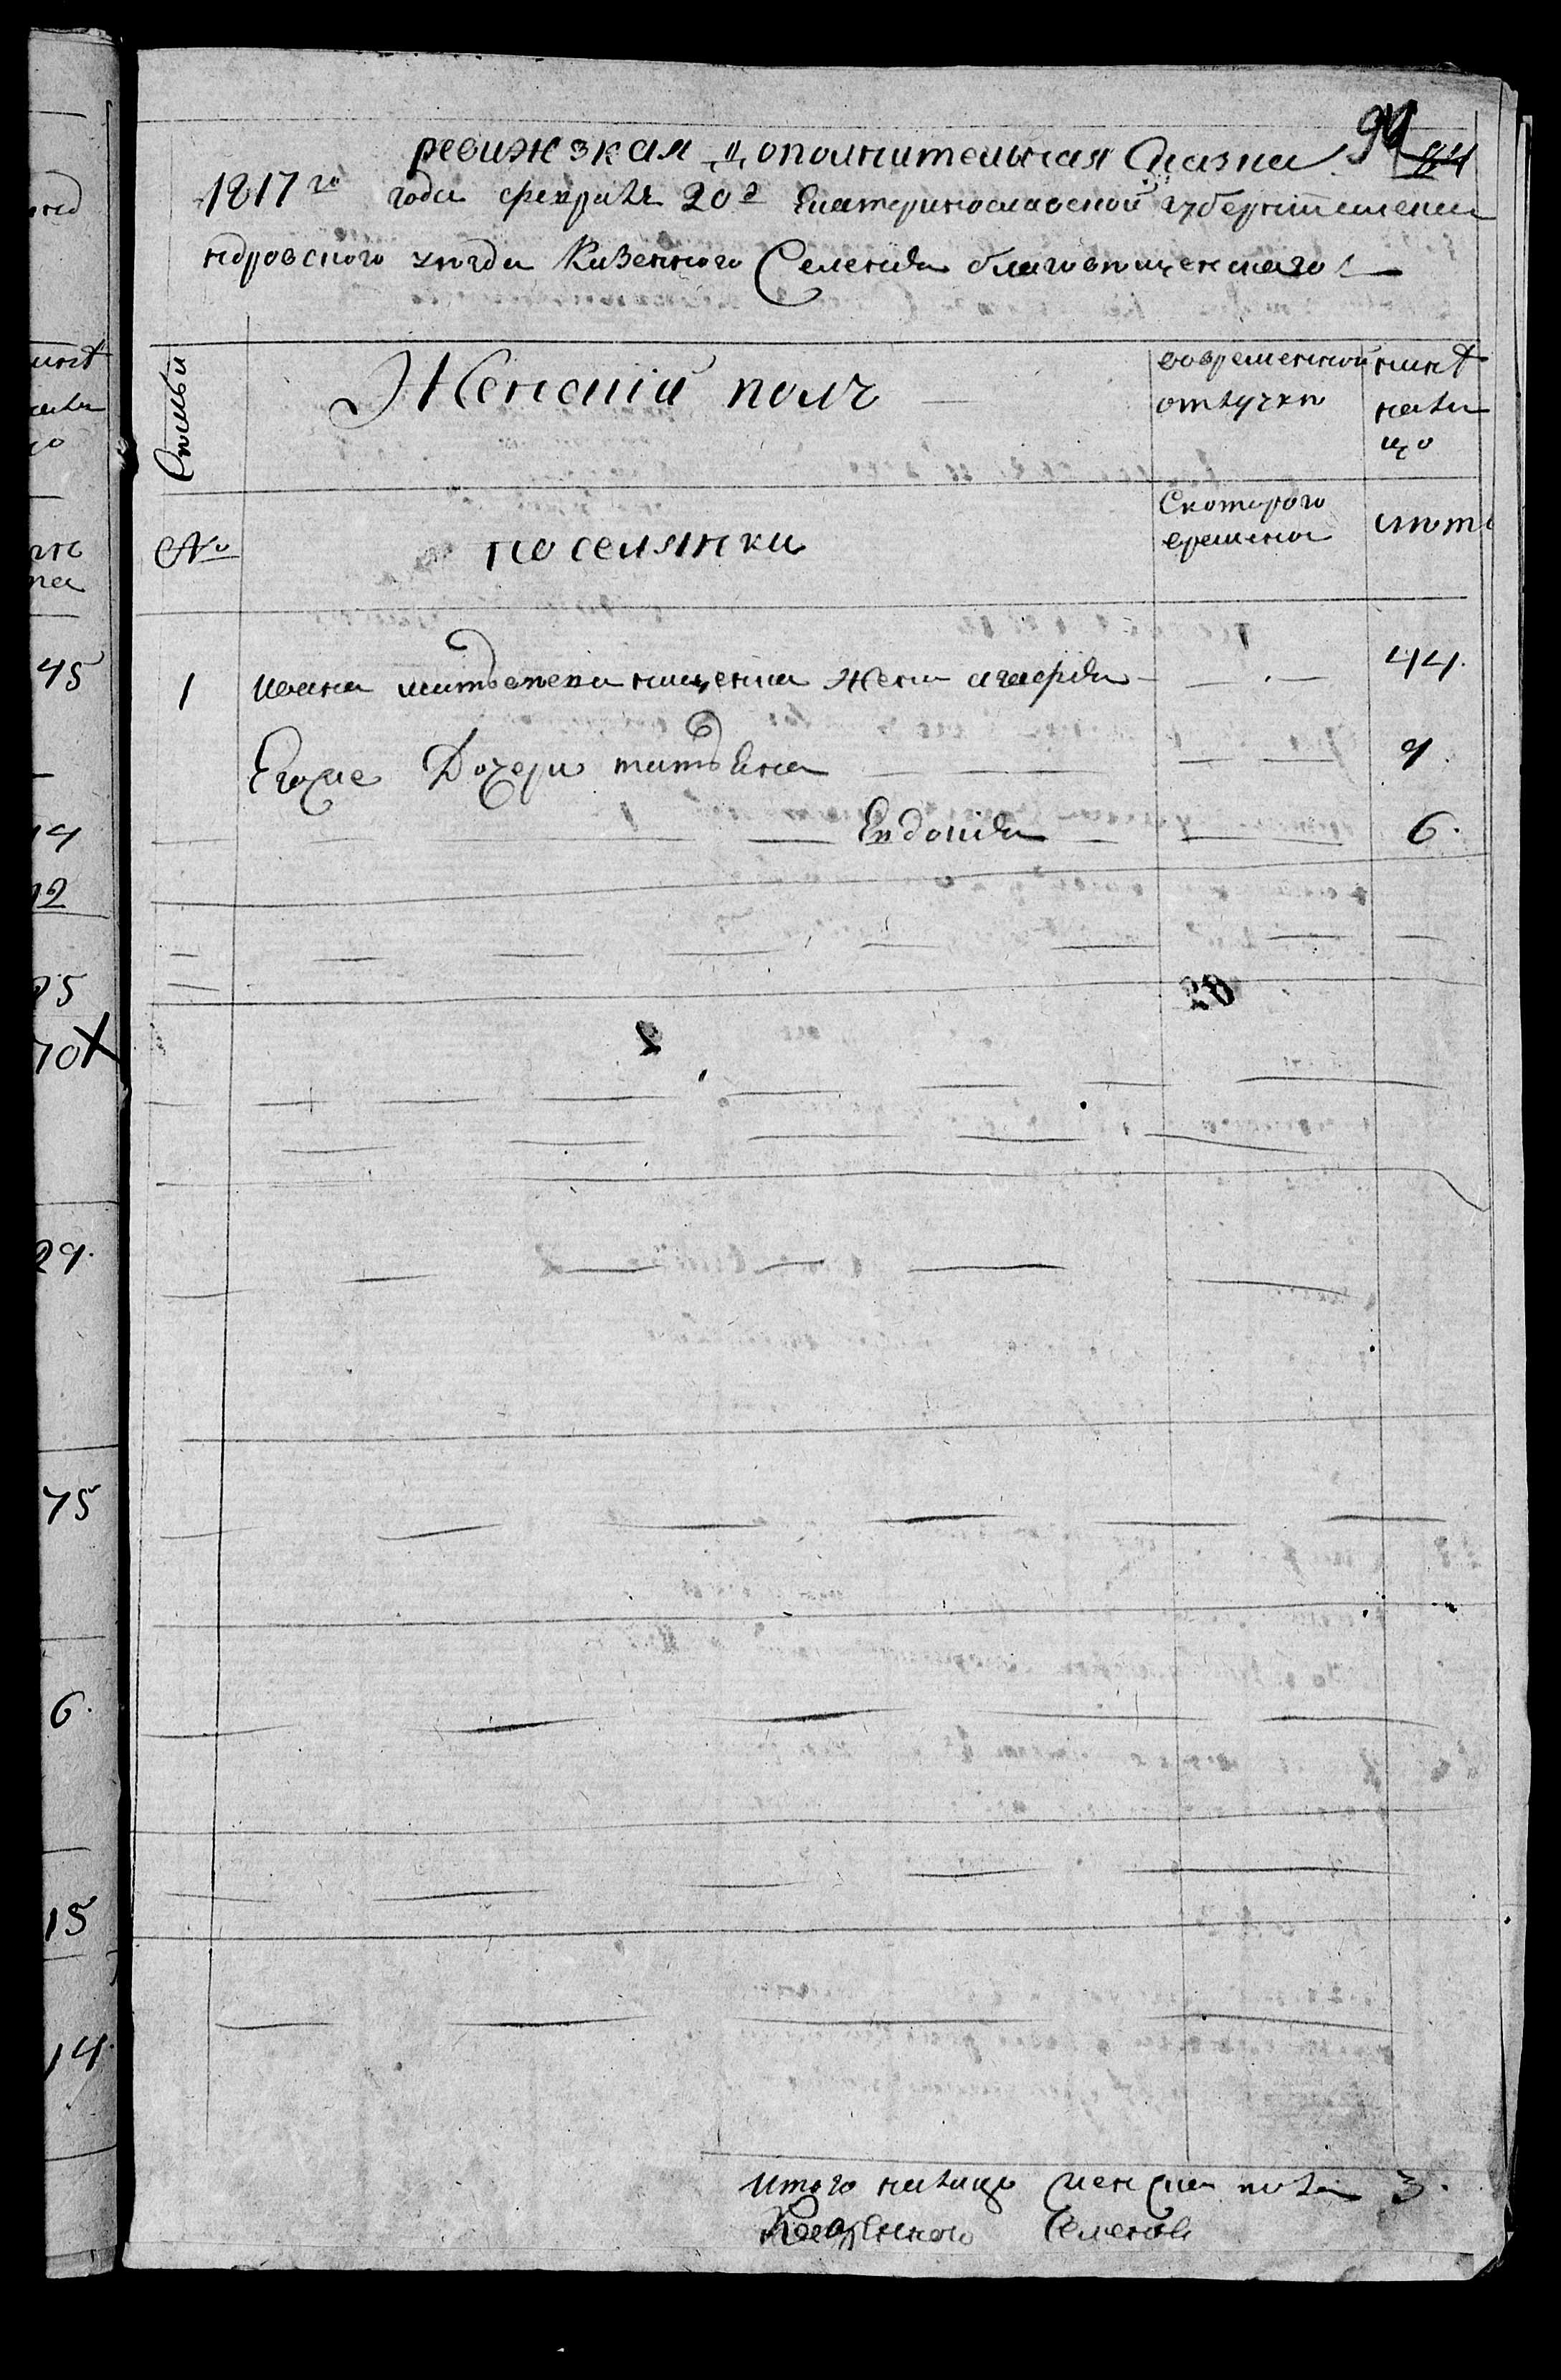 99 84
ревижзкая дополнительная Сказка
1817го года февраля 20д Екатеринославской губернии алекса
ндровского уезда Казенного Селения благовещенскаго
Семьи
Женский полъ
во временной отлучке
ныне налицо
№
поселянки
С которого времени
лета
1 ивана матвеева жена агафия 44
Егоже Дочери татьяна 9
Евдокия 6
20
2
Итого налицо женска пола 3
Казенного Селения
45
14
12
25
70
29
75
6
15
14